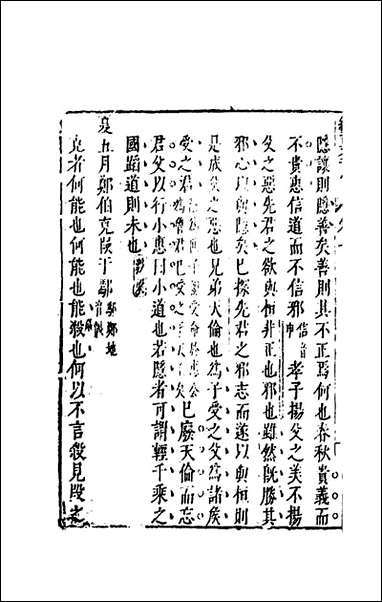 隱讓則隱善矣善則其不正焉何也春秋貴義而
不貴惠信道而不信邪信音申孝子揚父之美不揚
父之惡先君之欲與桓非正也邪也雖然既勝其
邪心以與隱矣已探先君之邪志而遂以與桓則
是成父之惡也兄弟天倫也為子受之父為諸侯
受之君已廢天倫而忘
君父以行小惠曰小道也若隱者可謂輕千乘之
國蹈道則未也
夏五月鄭伯克叚于鄢鄢鄭地
克者何能也何能也能殺也何以不言殺見叚之